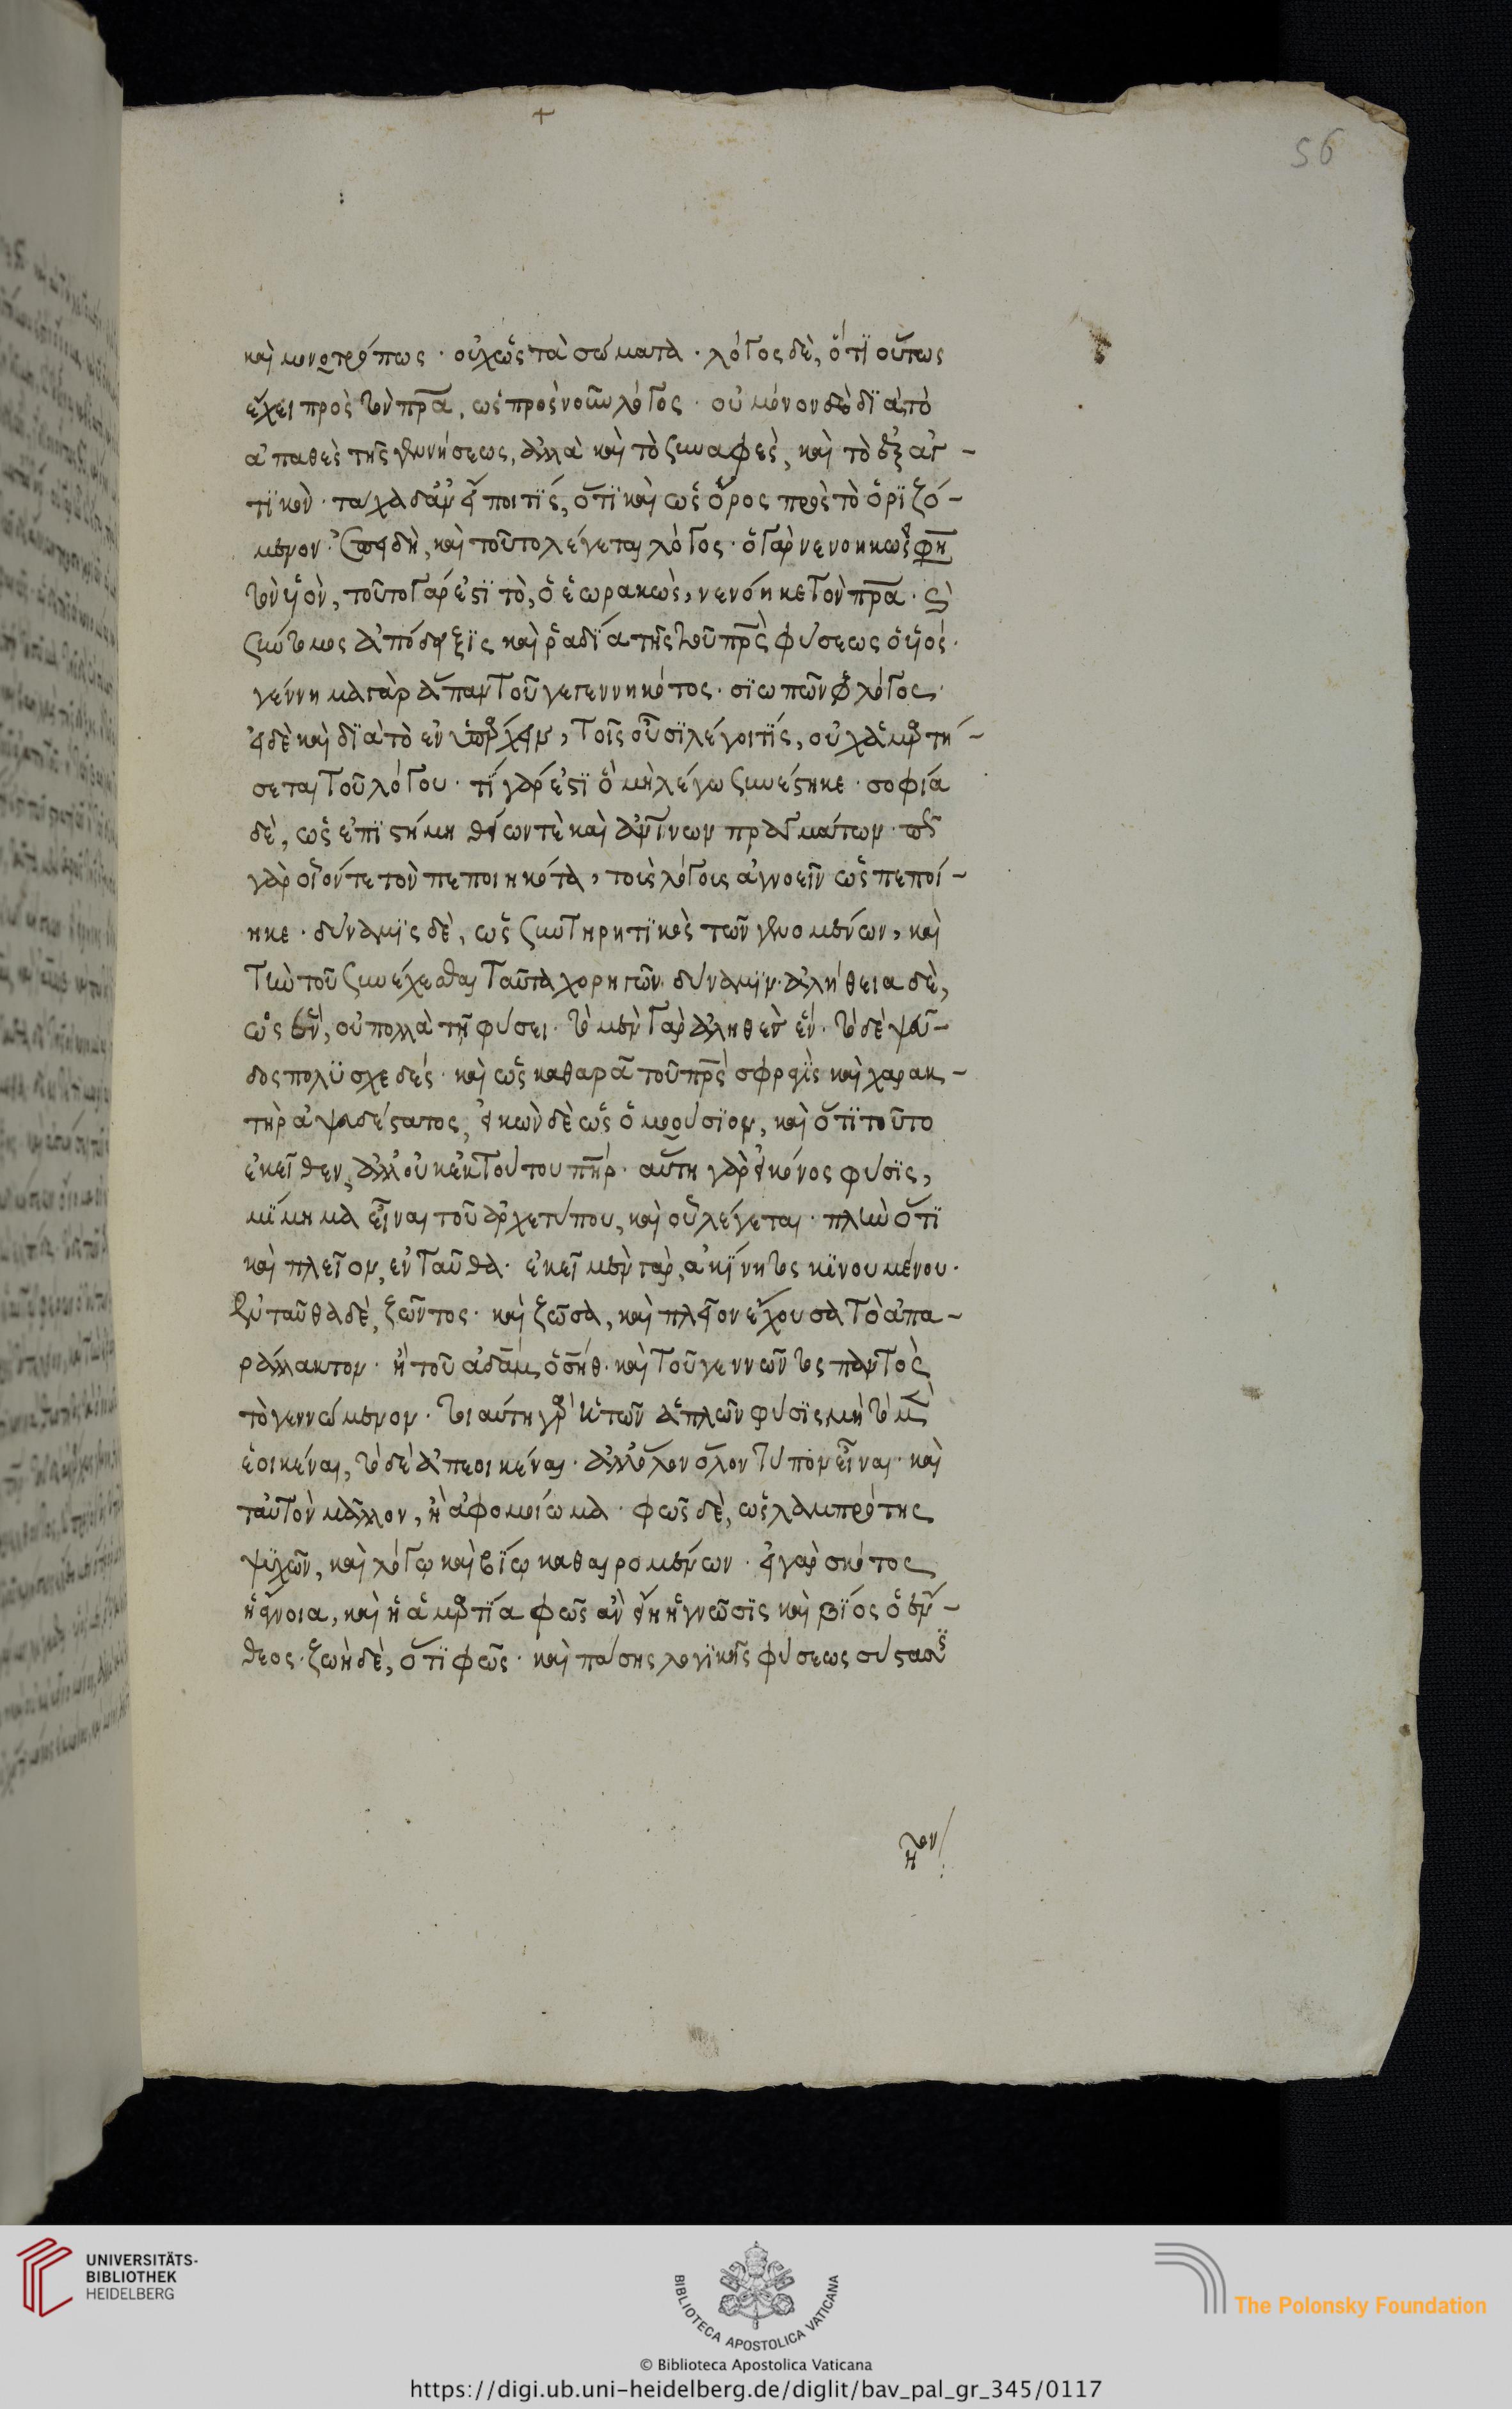 +
56
καὶ μονοτρόπως · οὐχ ὡς τὰ σώματα · λόγος δὲ, ὅτι οὕτως
ἔχει πρὸς τὸν πρα, ὡς πρὸς νοῦν λόγος · οὐ μόνον δὲ διὰ τὸ
ἀπαθὲς τῆς γεννήσεως, ἀλλὰ καὶ τὸ συναφὲς, καὶ τὸ ἐξαγ-
τικόν · τάχα δ' ἂν εἴποι τίς, ὅτι καὶ ὡς ὅρος πρὸς τὸ ὁριζό-
μενον · ἐπειδὴ, καὶ τοῦτο λέγεται λόγος · ὁ γὰρ νενοηκὼς φη
τὸν υἱὸν, τοῦτο γάρ ἐστι τὸ, ὁ ἑωρακὼς, νενόηκε τὸν πρα · καὶ
σύντομος ἀπόδειξις καὶ ῥαδία τῆς τοῦ πρς φύσεως ὁ υἱός ·
γέννημα γὰρ ἅπαν τοῦ γεγεννηκότος · σιωπῶν λόγος ·
εἰ δὲ καὶ διὰ τὸ ἐνυπάρχειν, τοῖς οὖσι λέγοι τίς, οὐχ ἁμαρτή-
σεται τοῦ λόγου · τί γάρ ἐστι ὃ μὴ λέγω συνέστηκε · σοφία
δὲ, ὡς ἐπιστήμη θείων τὲ καὶ ἀνίνων πραγμάτων · πῶς
γὰρ οἷόν τε τὸν πεποιηκότα, τοὺς λόγους ἀγνοεῖν ὡς πεποί-
ηκε · δύναμις δὲ, ὡς συντηρητικὸς τῶν γενομένων, καὶ
τὴν τοῦ συνέχεσθαι ταῦτα χορηγῶν δύναμιν · ἀλήθεια δὲ,
ὡς ἓν, οὐ πολλὰ τῇ φύσει · τὸ μὲν γὰρ ἀληθὲς ἕν · τὸ δὲ ψεῦ-
δος πολυσχεδές · καὶ ὡς καθαρὰ τοῦ πρς σφραγὶς καὶ χαρακ-
τὴρ ἀψευδέστατος, εἰκὼν δὲ ὡς ὁμοούσιον, καὶ ὅτι τοῦτο
ἐκεῖθεν, ἀλλ' οὐκ ἐκ τούτου πηρ · αὕτη γὰρ εἰκόνος φύσις,
μίμημα εἶναι τοῦ ἀρχετύπου, καὶ οὗ λέγεται · πλὴν ὅτι
καὶ πλεῖον, ἐνταῦθα · ἐκεῖ μὲν γὰρ, ἀκίνητος κινουμένου ·
ἐνταῦθα δὲ, ζῶντος · καὶ ζῶσα, καὶ πλεῖον ἔχουσα τὸ ἀπα-
ράλλακτον · ἢ τοῦ ἀδὰμ, ὁ σὴθ · καὶ τοῦ γεννῶντος παντὸς
τὸ γεννώμενον · τοιαύτη γὰρ ἡ τῶν ἁπλῶν φύσις μὴ τὸ μὲν
ἐοικέναι, τὸ δὲ ἀπεοικέναι · ἀλλ' ὅλον ὅλου τύπον εἶναι · καὶ
ταὐτὸν μᾶλλον, ἢ ἀφομοίωμα · φῶς δὲ, ὡς λαμπρότης
ψυχῶν, καὶ λόγῳ καὶ βίῳ καθαιρομένων · εἰ γὰρ σκότος
ἡ ἄγνοια, καὶ ἡ ἁμαρτία φῶς ἂν εἴη ἡ γνῶσις καὶ βίος ὁ ἔν-
θεος · ζωὴ δὲ, ὅτι φῶς · καὶ πάσης λογικῆς φύσεως συστασ
UNIVERSITÄTS-
BIBLIOTHEK
HEIDELBERG
BIBLIOTECA APOSTOLICA VATICANA
The Polonsky Foundation
© Biblioteca Apostolica Vaticana
https://digi.ub.uni-heidelberg.de/diglit/bav_pal_gr_345/0117